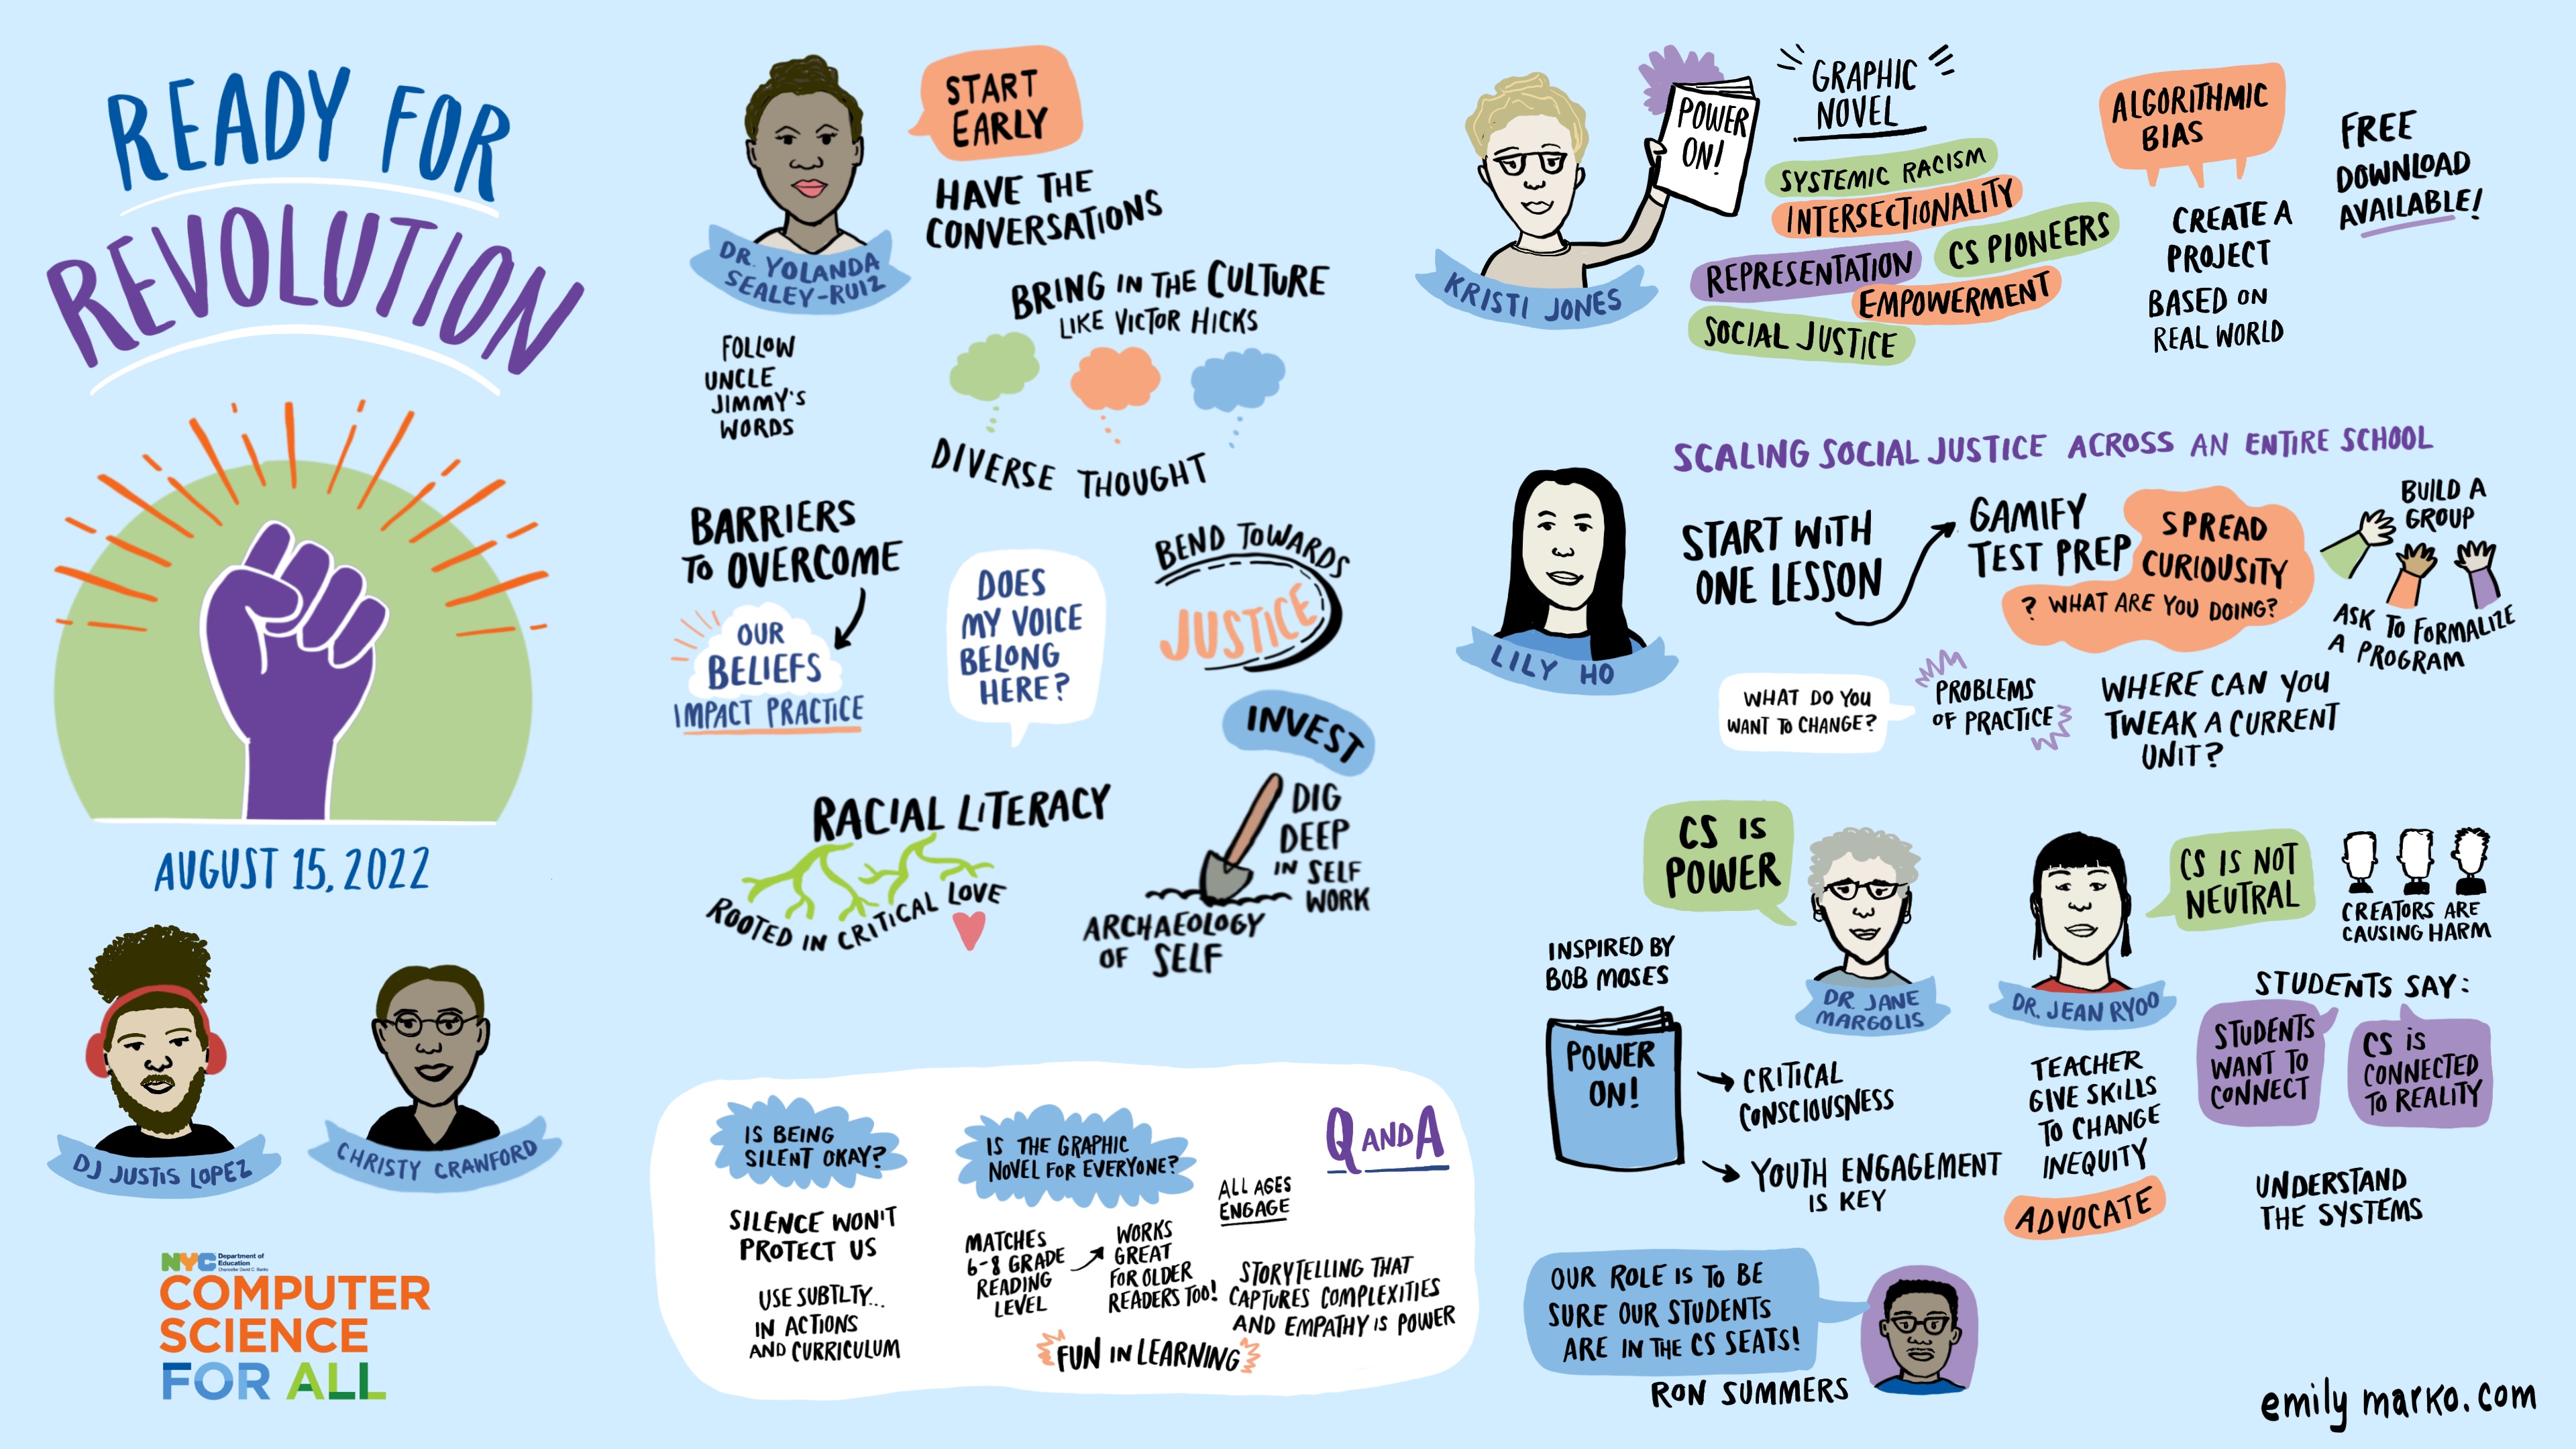 READY FOR
REVOLUTION
AUGUST 15, 2022
DJ JUSTIS LOPEZ
CHRISTY CRAWFORD
NYC Department of
Education
Chancellor David C. Banks
COMPUTER
SCIENCE
FOR ALL
DR. YOLANDA
SEALEY-RUIZ
START
EARLY
HAVE THE
CONVERSATIONS
BRING IN THE CULTURE
LIKE VICTOR HICKS
FOLLOW
UNCLE
JIMMY'S
WORDS
DIVERSE THOUGHT
BARRIERS
TO OVERCOME
OUR
BELIEFS
IMPACT PRACTICE
DOES
MY VOICE
BELONG
HERE?
BEND TOWARDS
JUSTICE
INVEST
DIG
DEEP
IN SELF
WORK
ARCHAEOLOGY
OF SELF
RACIAL LITERACY
ROOTED IN CRITICAL LOVE
Q AND A
IS BEING
SILENT OKAY?
SILENCE WON'T
PROTECT US
USE SUBTLTY...
IN ACTIONS
AND CURRICULUM
IS THE GRAPHIC
NOVEL FOR EVERYONE?
MATCHES
6-8 GRADE
READING
LEVEL
WORKS
GREAT
FOR OLDER
READERS TOO!
ALL AGES
ENGAGE
STORYTELLING THAT
CAPTURES COMPLEXITIES
AND EMPATHY IS POWER
FUN IN LEARNING
KRISTI JONES
POWER
ON!
GRAPHIC
NOVEL
SYSTEMIC RACISM
INTERSECTIONALITY
CS PIONEERS
REPRESENTATION
EMPOWERMENT
SOCIAL JUSTICE
ALGORITHMIC
BIAS
CREATE A
PROJECT
BASED ON
REAL WORLD
FREE
DOWNLOAD
AVAILABLE!
SCALING SOCIAL JUSTICE ACROSS AN ENTIRE SCHOOL
LILY HO
START WITH
ONE LESSON
GAMIFY
TEST PREP
SPREAD
CURIOUSITY
? WHAT ARE YOU DOING?
BUILD A
GROUP
ASK TO FORMALIZE
A PROGRAM
WHAT DO YOU
WANT TO CHANGE?
PROBLEMS
OF PRACTICE
WHERE CAN YOU
TWEAK A CURRENT
UNIT?
CS IS
POWER
DR. JANE
MARGOLIS
INSPIRED BY
BOB MOSES
POWER
ON!
CRITICAL
CONSCIOUSNESS
YOUTH ENGAGEMENT
IS KEY
DR. JEAN RYOO
CS IS NOT
NEUTRAL
CREATORS ARE
CAUSING HARM
STUDENTS SAY:
STUDENTS
WANT TO
CONNECT
CS IS
CONNECTED
TO REALITY
TEACHER
GIVE SKILLS
TO CHANGE
INEQUITY
ADVOCATE
UNDERSTAND
THE SYSTEMS
OUR ROLE IS TO BE
SURE OUR STUDENTS
ARE IN THE CS SEATS!
RON SUMMERS
emily marko.com